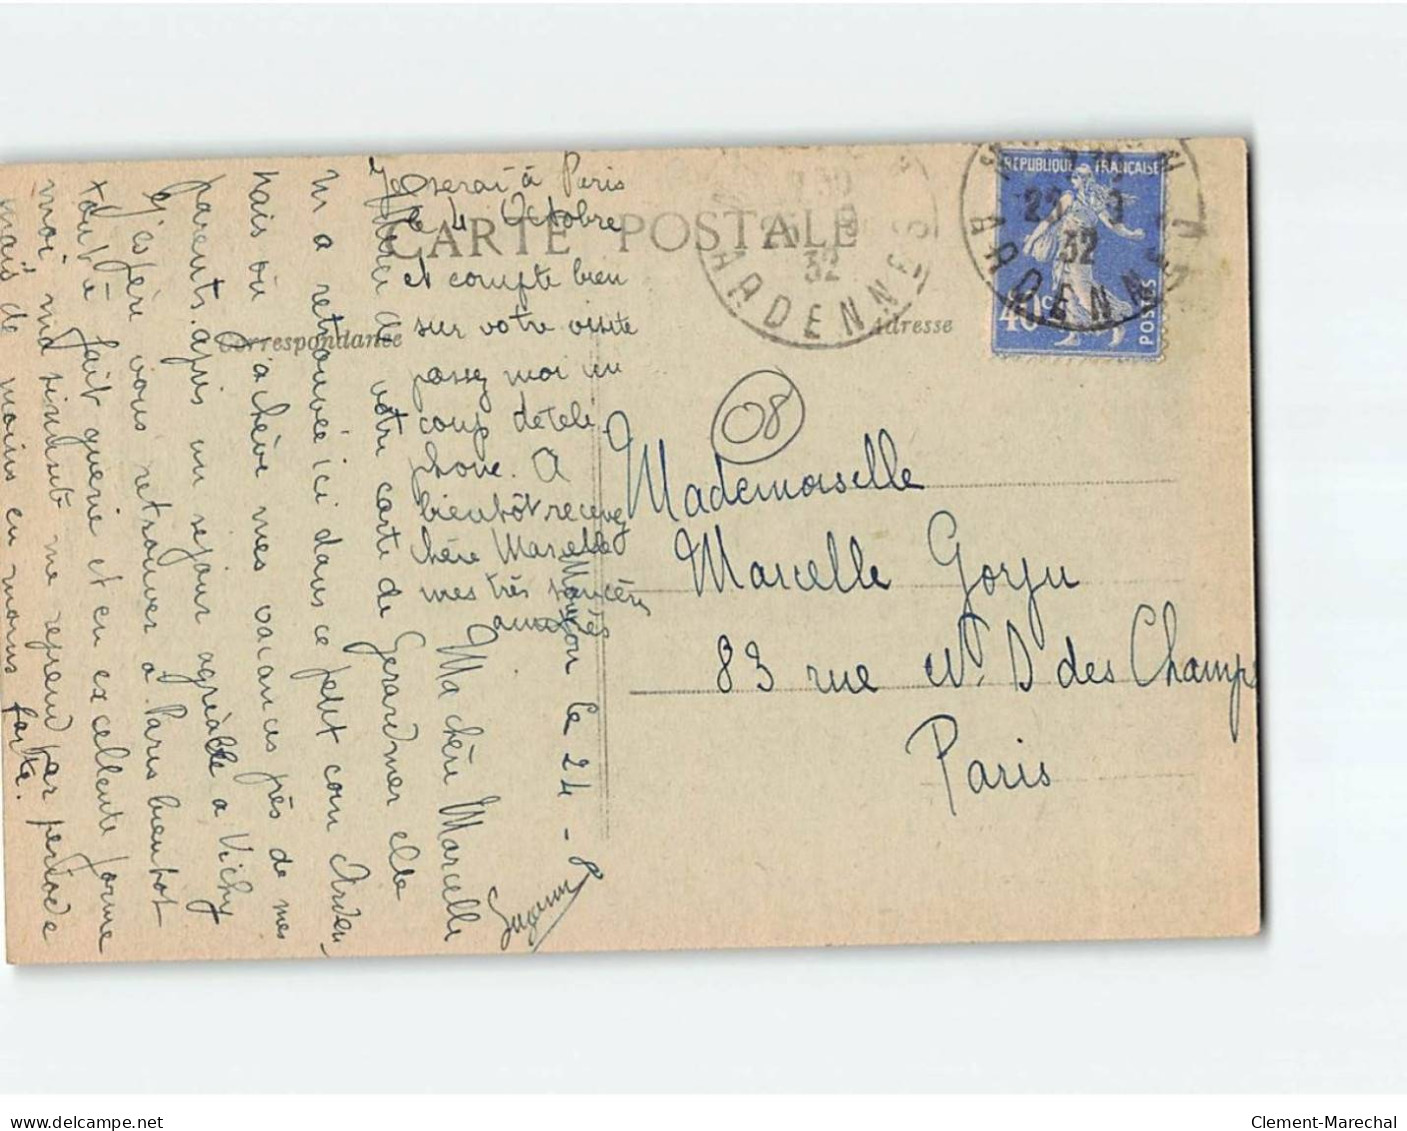 CARTE POSTALE
Correspondance
Adresse
REPUBLIQUE FRANÇAISE
40c
POSTES
32
ARDENNES
32
ARDENNES
08
Mademoiselle
Marcelle Gorju
83 rue N. D des Champs
Paris
le 24 - 8
Ma chère Marcelle
de votre carte de Gerardmer elle
m'a retrouvée ici dans ce petit coin Arden
nais où j'achève mes vacances près de mes
parents. après un séjour agréable à Vichy
J'espère vous retrouver à Paris bientôt
tout à fait guérie et en excellente forme
moi, ma sinusite me reprend par période
mais de moins en moins forte.
Je serai à Paris
le 4 Octobre
et compte bien
sur votre visite
passez moi un
coup de télé
phone. A
bientôt recevez
chère Marcelle
mes très sincères
amitiés
Suzanne
delcampe.net
Clement-Marechal